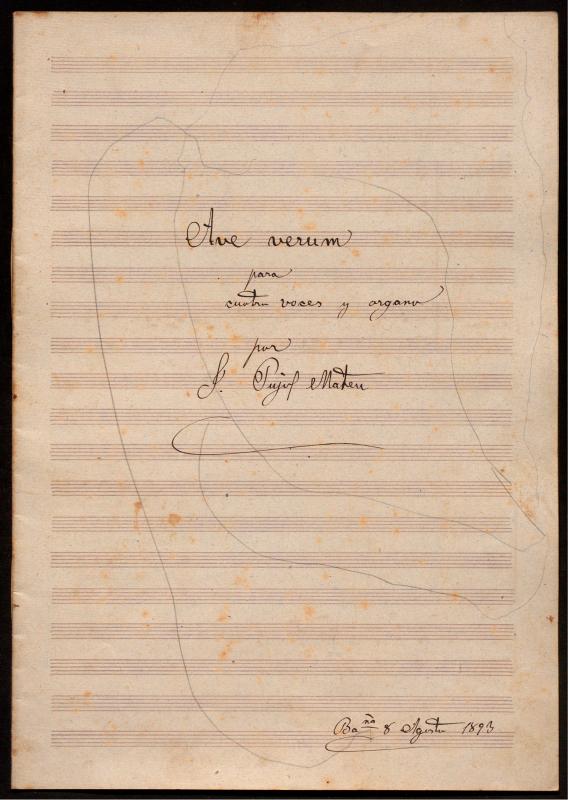 Ave verum
para
cuatro voces y organo
por
S. Pujol Mateu
Ba ña 8 Agosto 1893